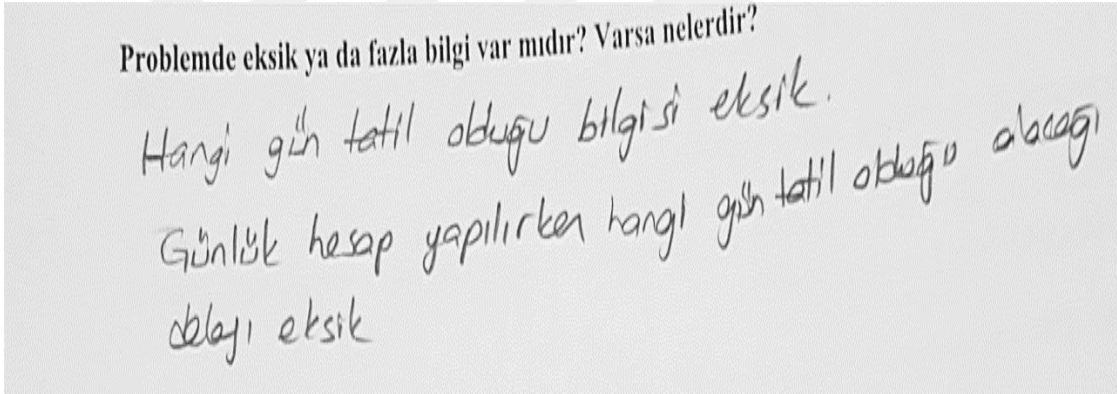 Problemde eksik ya da fazla bilgi var mıdır? Varsa nelerdir?
Hangi gün tatil olduğu bilgisi eksik.
Günlük hesap yapılırken hangi gün tatil olduğu olacağı
eksik